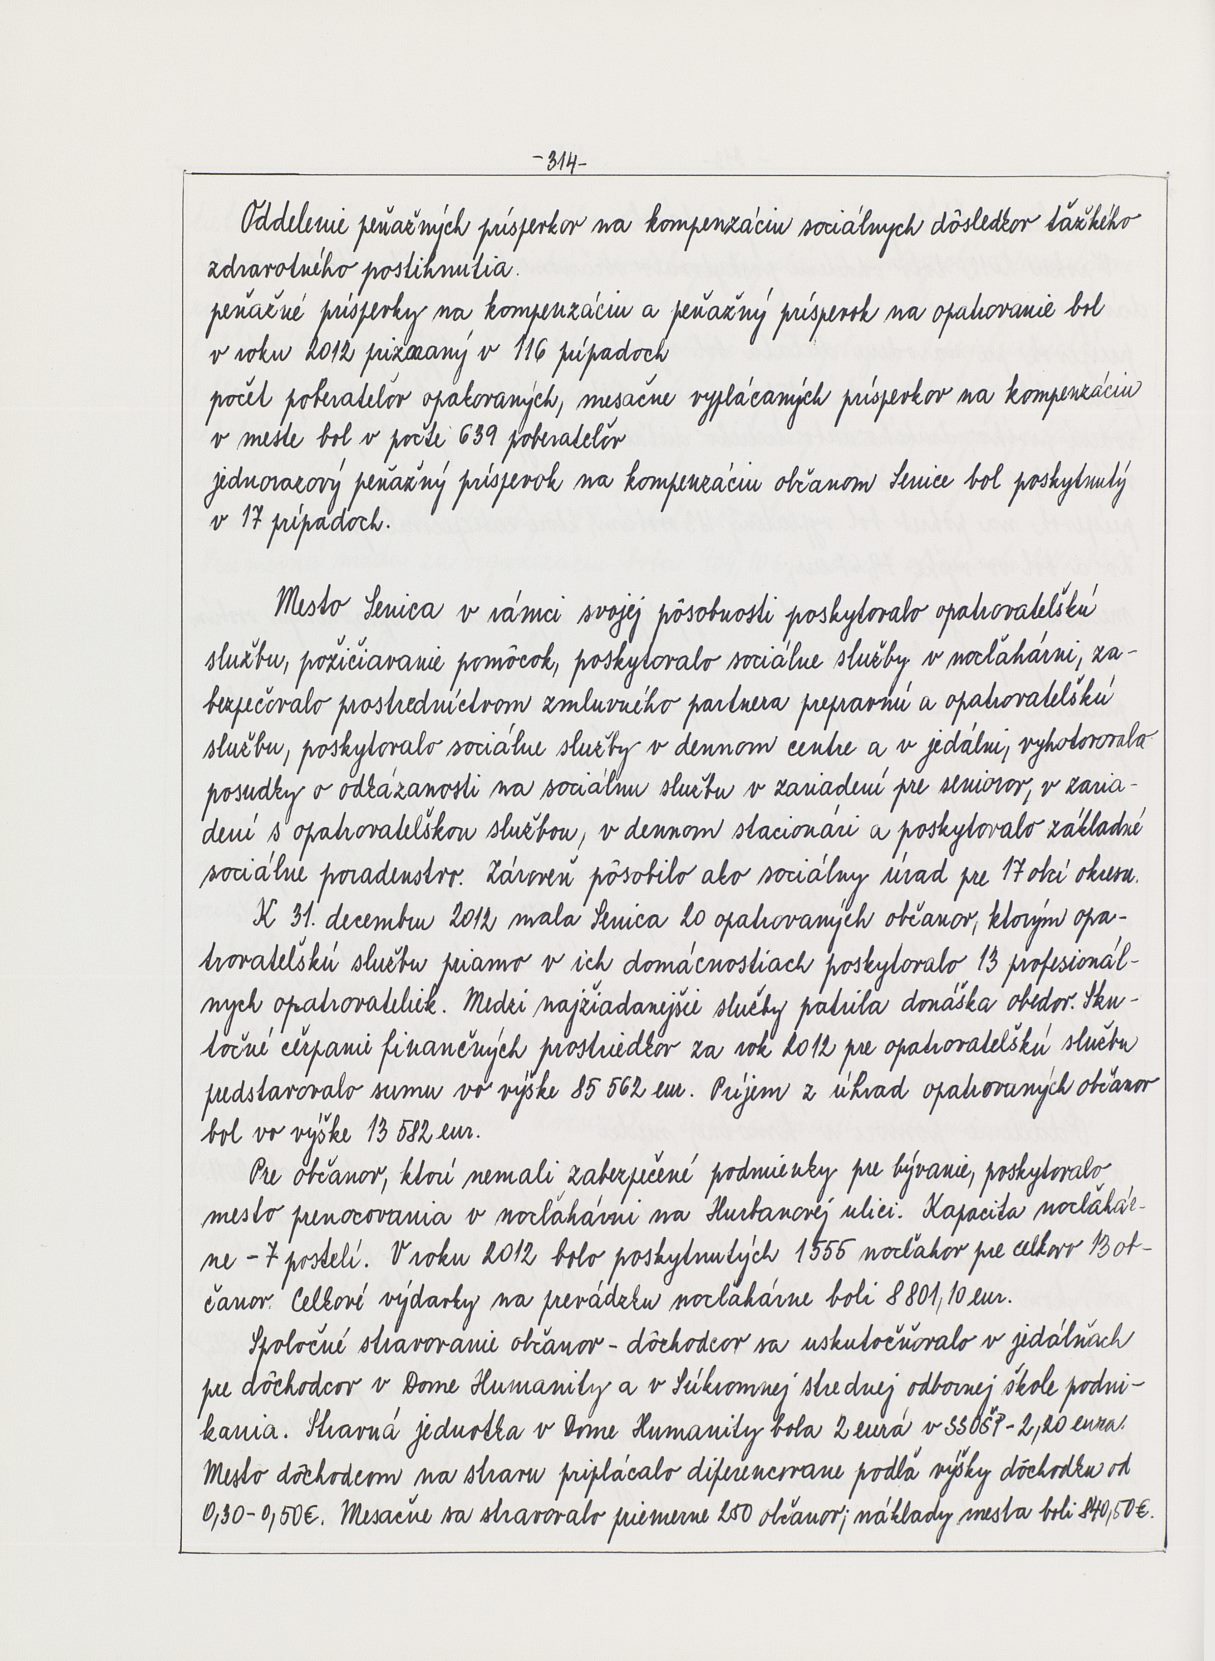 -314-
Oddelenie peňažných príspevkov na kompenzáciu sociálnych dôsledkov ťažkého
zdravotného postihnutia.
peňažné príspevky na kompenzáciu a peňažný príspevok na opatrovanie bol
v roku 2012 priznaný v 116 prípadoch
počet poberateľov opakovaných, mesačne vyplácaných príspevkov na kompenzáciu
v meste bol v počte 639 poberateľov
jednorazový peňažný príspevok na kompenzáciu občanom Senice bol poskytnutý
v 17 prípadoch.
Mesto Senica v rámci svojej pôsobnosti poskytovalo opatrovateľskú
službu, požičiavanie pomôcok, poskytovalo sociálne služby v nocľahárni, za-
bezpečovalo prostredníctvom zmluvného partnera prepravnú a opatrovateľskú
službu, poskytovalo sociálne služby v dennom centre a v jedálni, vyhotovovalo
posudky o odkázanosti na sociálnu službu v zariadení pre seniorov, v zaria-
dení s opatrovateľskou službou, v dennom stacionári a poskytovalo základné
sociálne poradenstvo. Zároveň pôsobilo ako sociálny úrad pre 17 obcí okresu.
K 31. decembru 2012 mala Senica 20 opatrovaných občanov, ktorým opa-
trovateľskú službu priamo v ich domácnostiach poskytovalo 13 profesionál-
nych opatrovateliek. Medzi najžiadanejšie služby patrila donáška obedov. Sku-
točné čerpanie finančných prostriedkov za rok 2012 pre opatrovateľskú službu
predstavovalo sumu vo výške 85 562 eur. Príjem z úhrad opatrovaných občanov
bol vo výške 13 582 eur.
Pre občanov, ktorí nemali zabezpečené podmienky pre bývanie, poskytovalo
mesto prenocovania v nocľahárni na Hurbanovej ulici. Kapacita nocľahár-
ne - 7 postelí. V roku 2012 bolo poskytnutých 1555 nocľahov pre celkovo 13 ob-
čanov. Celkové výdavky na prevádzku nocľahárne boli 8 801,10 eur.
Spoločné stravovanie občanov - dôchodcov sa uskutočňovalo v jedálňach
pre dôchodcov v Dome Humanity a v Súkromnej strednej odbornej škole podni-
kania. Stravná jednotka v Dome Humanity bola 2 eurá v SSOŠP - 2,20 eura.
Mesto dôchodcom na stravu priplácalo diferencovane podľa výšky dôchodku od
0,30 - 0,50€. Mesačne sa stravovalo priemerne 250 občanov; náklady mesta boli 840,50€.